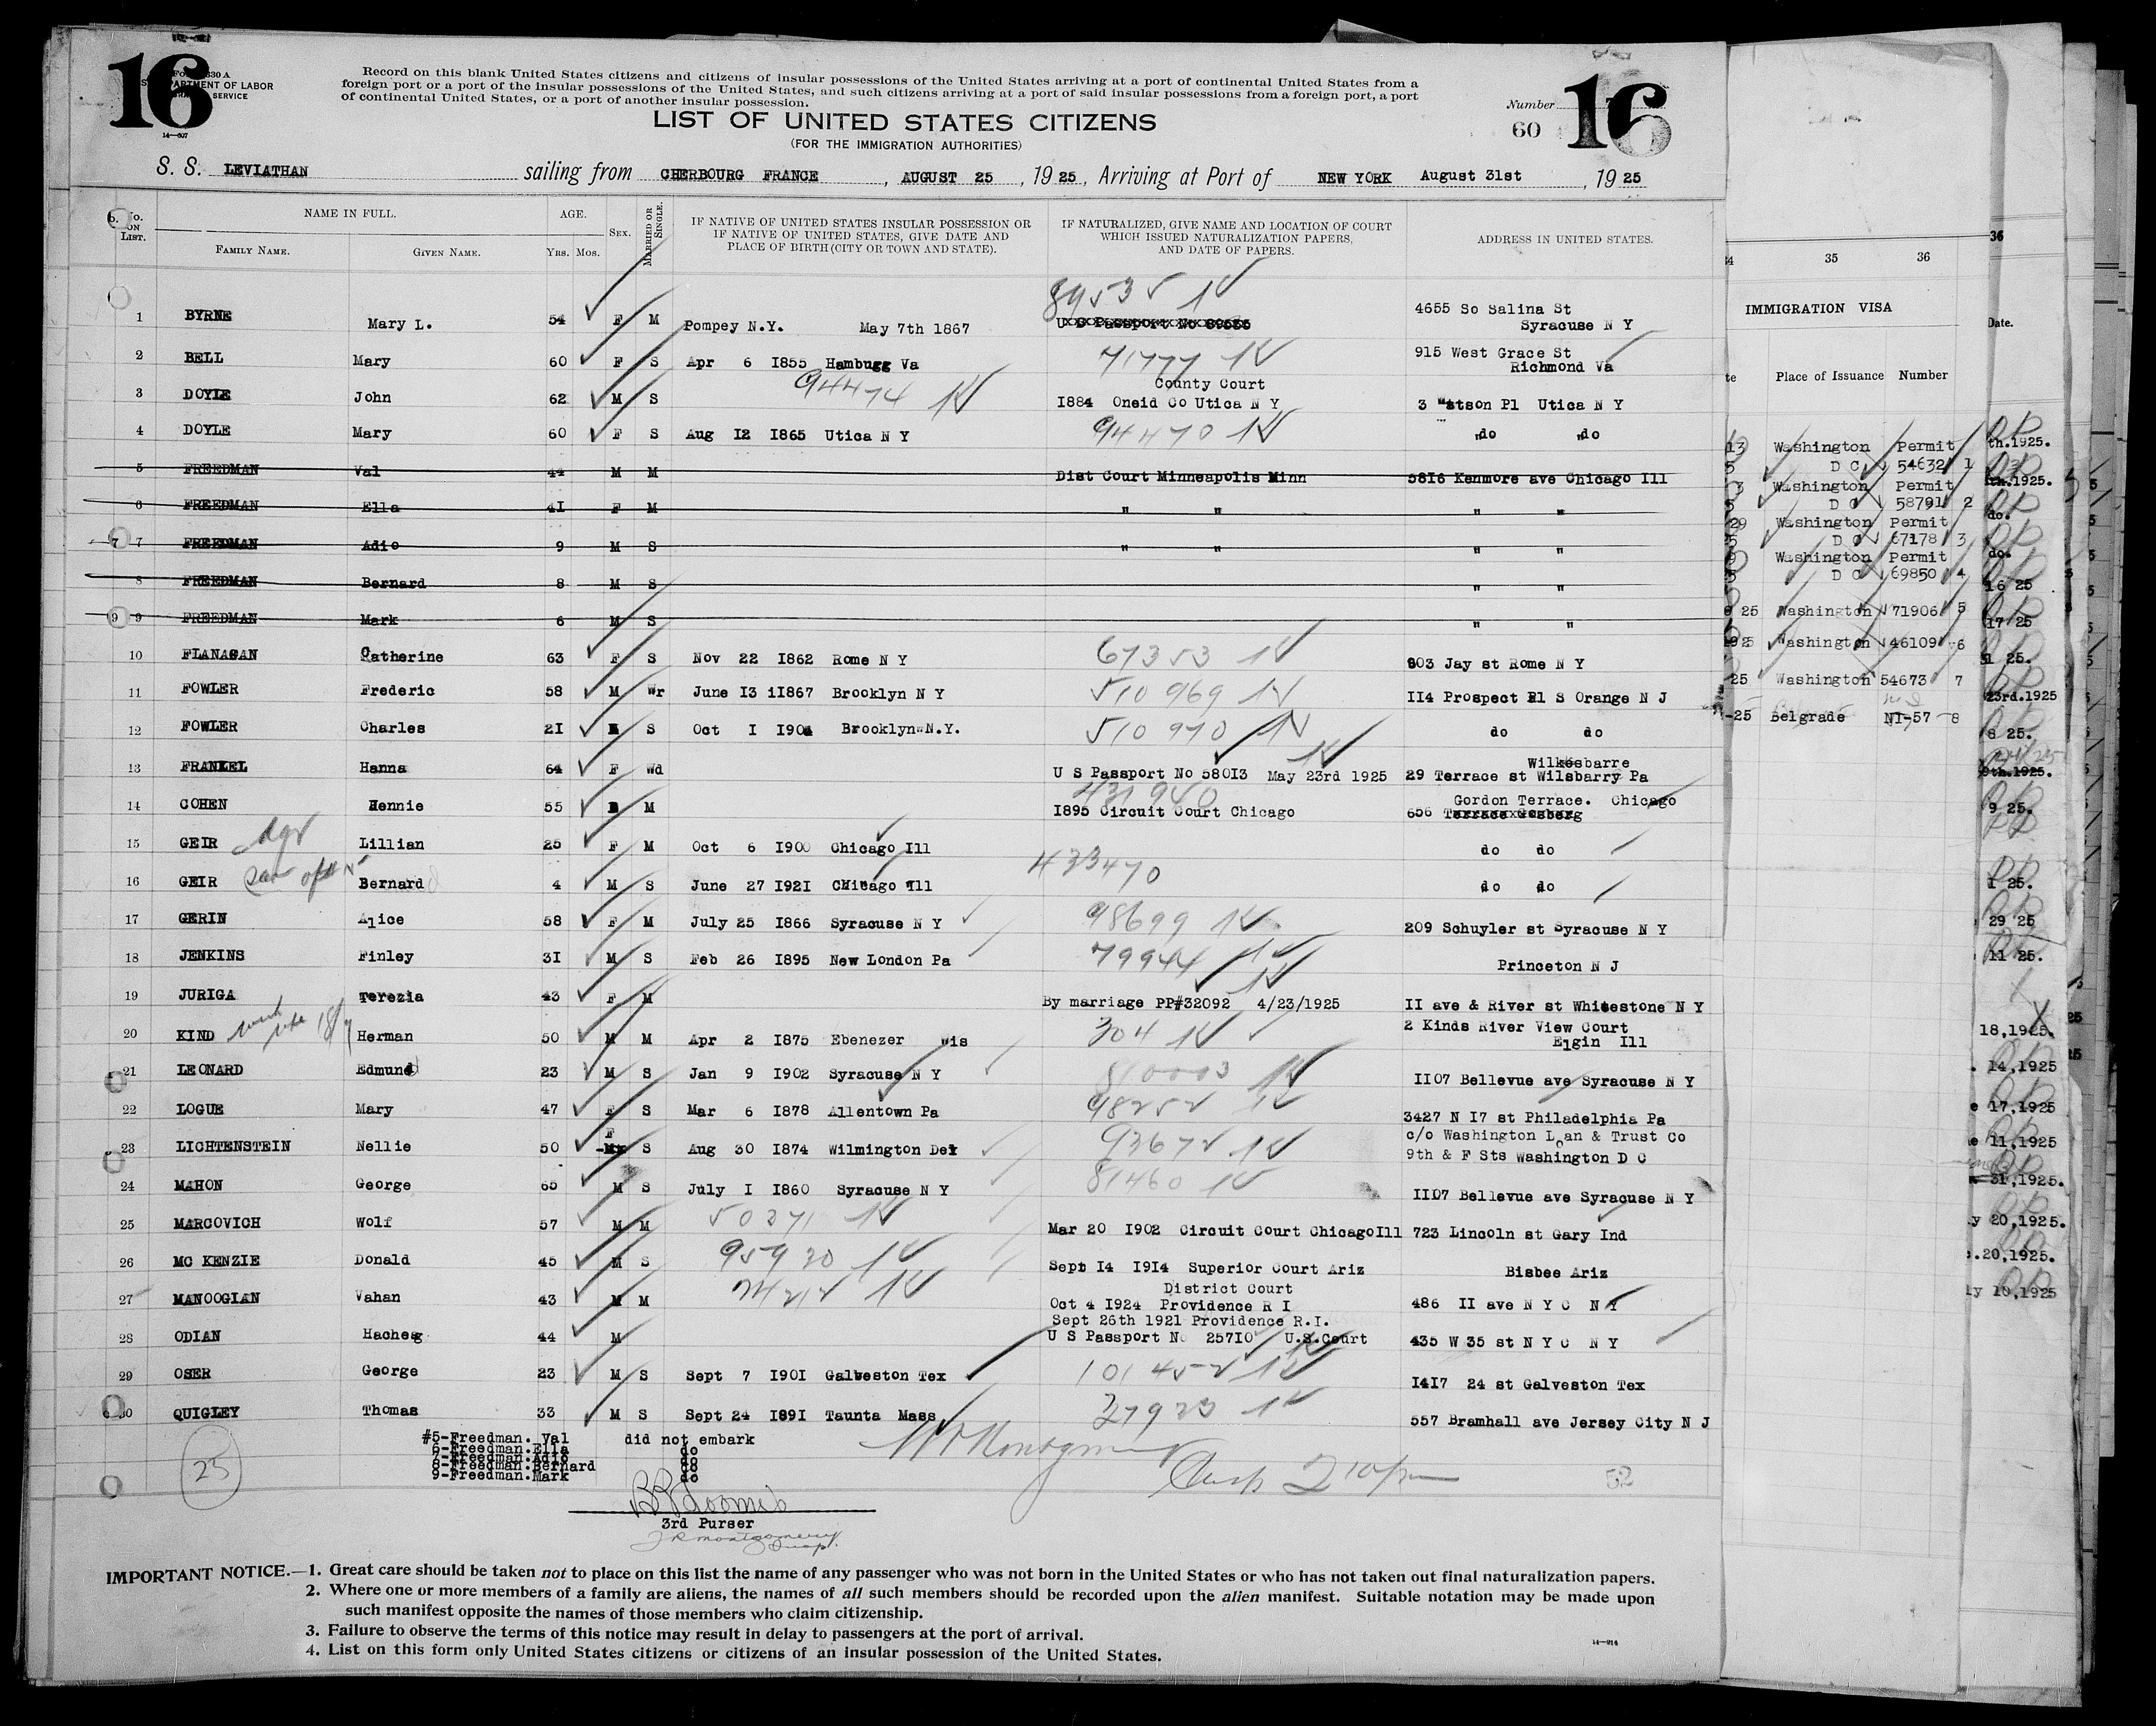 16
Form 630 A
U.S. DEPARTMENT OF LABOR
IMMIGRATION SERVICE
14—607
Record on this blank United States citizens and citizens of insular possessions of the United States arriving at a port of continental United States from a
foreign port or a port of the insular possessions of the United States, and such citizens arriving at a port of said insular possessions from a foreign port, a port
of continental United States, or a port of another insular possession.
Number
60
16
LIST OF UNITED STATES CITIZENS
(FOR THE IMMIGRATION AUTHORITIES)
S. S. LEVIATHAN sailing from CHERBOURG FRANCE, AUGUST 25, 1925, Arriving at Port of NEW YORK August 31st, 1925
No. ON LIST. NAME IN FULL. FAMILY NAME. GIVEN NAME. AGE. Yrs. Mos. SEX. MARRIED OR SINGLE. IF NATIVE OF UNITED STATES INSULAR POSSESSION OR IF NATIVE OF UNITED STATES, GIVE DATE AND PLACE OF BIRTH (CITY OR TOWN AND STATE). IF NATURALIZED, GIVE NAME AND LOCATION OF COURT WHICH ISSUED NATURALIZATION PAPERS, AND DATE OF PAPERS. ADDRESS IN UNITED STATES.
1 BYRNE Mary L. 54 F M Pompey N.Y. May 7th 1867 89535 U S Passport No 89535 4655 So Salina St Syracuse N Y
2 BELL Mary 60 F S Apr 6 1855 Hambugg Va 71777 915 West Grace St Richmond Va
3 DOYLE John 62 M S 94474 County Court 1884 Oneid Co Utica N Y 3 Watson Pl Utica N Y
4 DOYLE Mary 60 F S Aug 12 1865 Utica N Y 94470 do do
5 FREEDMAN Val 44 M M Dist Court Minneapolis Minn 5816 Kenmore ave Chicago Ill
6 FREEDMAN Ella 41 F M " " " "
7 7 FREEDMAN Adio 9 M S " " " "
8 FREEDMAN Bernard 8 M S " "
9 9 FREEDMAN Mark 6 M S " "
10 FLANAGAN Catherine 63 F S Nov 22 1862 Rome N Y 67353 903 Jay st Rome N Y
11 FOWLER Frederic 58 M Wr June 13 i1867 Brooklyn N Y 510969 114 Prospect Pl S Orange N J
12 FOWLER Charles 21 M S Oct 1 1904 Brooklyn N.Y. 510970 do do
13 FRANKEL Hanna 64 F Wd U S Passport No 58013 May 23rd 1925 Wilkesbarre 29 Terrace st Wilsbarry Pa
14 COHEN Hennie 55 M 431940 1895 Circuit Court Chicago Gordon Terrace. Chicago 656
15 GEIR Lillian 25 F M Oct 6 1900 Chicago Ill do do
16 GEIR Bernard 4 M S June 27 1921 Chicago Ill 433470 do do
17 GERIN Alice 58 F M July 25 1866 Syracuse N Y 98699 209 Schuyler st Syracuse N Y
18 JENKINS Finley 31 M S Feb 26 1895 New London Pa 79944 Princeton N J
19 JURIGA Terezia 43 F M By marriage PP#32092 4/23/1925 11 ave & River st Whitestone N Y
20 KIND Herman 50 M M Apr 2 1875 Ebenezer Wis 304 2 Kinds River View Court Elgin Ill
21 LEONARD Edmund 23 M S Jan 9 1902 Syracuse N Y 1107 Bellevue ave Syracuse N Y
22 LOGUE Mary 47 F S Mar 6 1878 Allentown Pa 98252 3427 N 17 st Philadelphia Pa
23 LICHTENSTEIN Nellie 50 F S Aug 30 1874 Wilmington Del 93672 c/o Washington Loan & Trust Co 9th & F Sts Washington D C
24 MAHON George 65 M S July 1 1860 Syracuse N Y 81460 1107 Bellevue ave Syracuse N Y
25 MARCOVICH Wolf 57 M M 50371 Mar 20 1902 Circuit Court Chicago Ill 723 Lincoln st Gary Ind
26 MC KENZIE Donald 45 M S 95920 Sept 14 1914 Superior Court Ariz Bisbee Ariz
27 MANOOGIAN Vahan 43 M M District Court Oct 4 1924 Providence R I 486 11 ave N Y C N Y
28 ODIAN Hacheg 44 M Sept 26th 1921 Providence R.I. U S Passport No 25710 U.S.Court 435 W 35 st N Y C N Y
29 OSER George 23 M S Sept 7 1901 Galveston Tex 101452 1417 24 st Galveston Tex
30 QUIGLEY Thomas 33 M S Sept 24 1891 Taunta Mass 27923 557 Bramhall ave Jersey City N J
#5-Freedman. Val did not embark
6-Freedman.Ella do
7-Freedman.Adio do
8-Freedman.Bernard do
9-Freedman.Mark do
25
52
3rd Purser
IMPORTANT NOTICE.—1. Great care should be taken not to place on this list the name of any passenger who was not born in the United States or who has not taken out final naturalization papers.
2. Where one or more members of a family are aliens, the names of all such members should be recorded upon the alien manifest. Suitable notation may be made upon
such manifest opposite the names of those members who claim citizenship.
3. Failure to observe the terms of this notice may result in delay to passengers at the port of arrival.
4. List on this form only United States citizens or citizens of an insular possession of the United States.
14—914
34 35 36
IMMIGRATION VISA
Place of Issuance Number
13 Washington Permit
D C 54632 1
3 Washington Permit
D C 58791 2
29 Washington Permit
D C 67178 3
Washington Permit
D C 69850 4
25 Washington 71906 5
1925 Washington 46109 6
25 Washington 54673 7
-25 Belgrade NI-57 8
36
Date.
th.1925.
th.1925.
do.
do.
16 25
17 25
1 25.
23rd.1925
8 25.
9th.1925.
9 25.
1 25.
29 25
11 25.
18,1925.
14,1925
17,1925
11,1925
31,1925.
y 20,1925.
.20,1925.
ly 10,1925